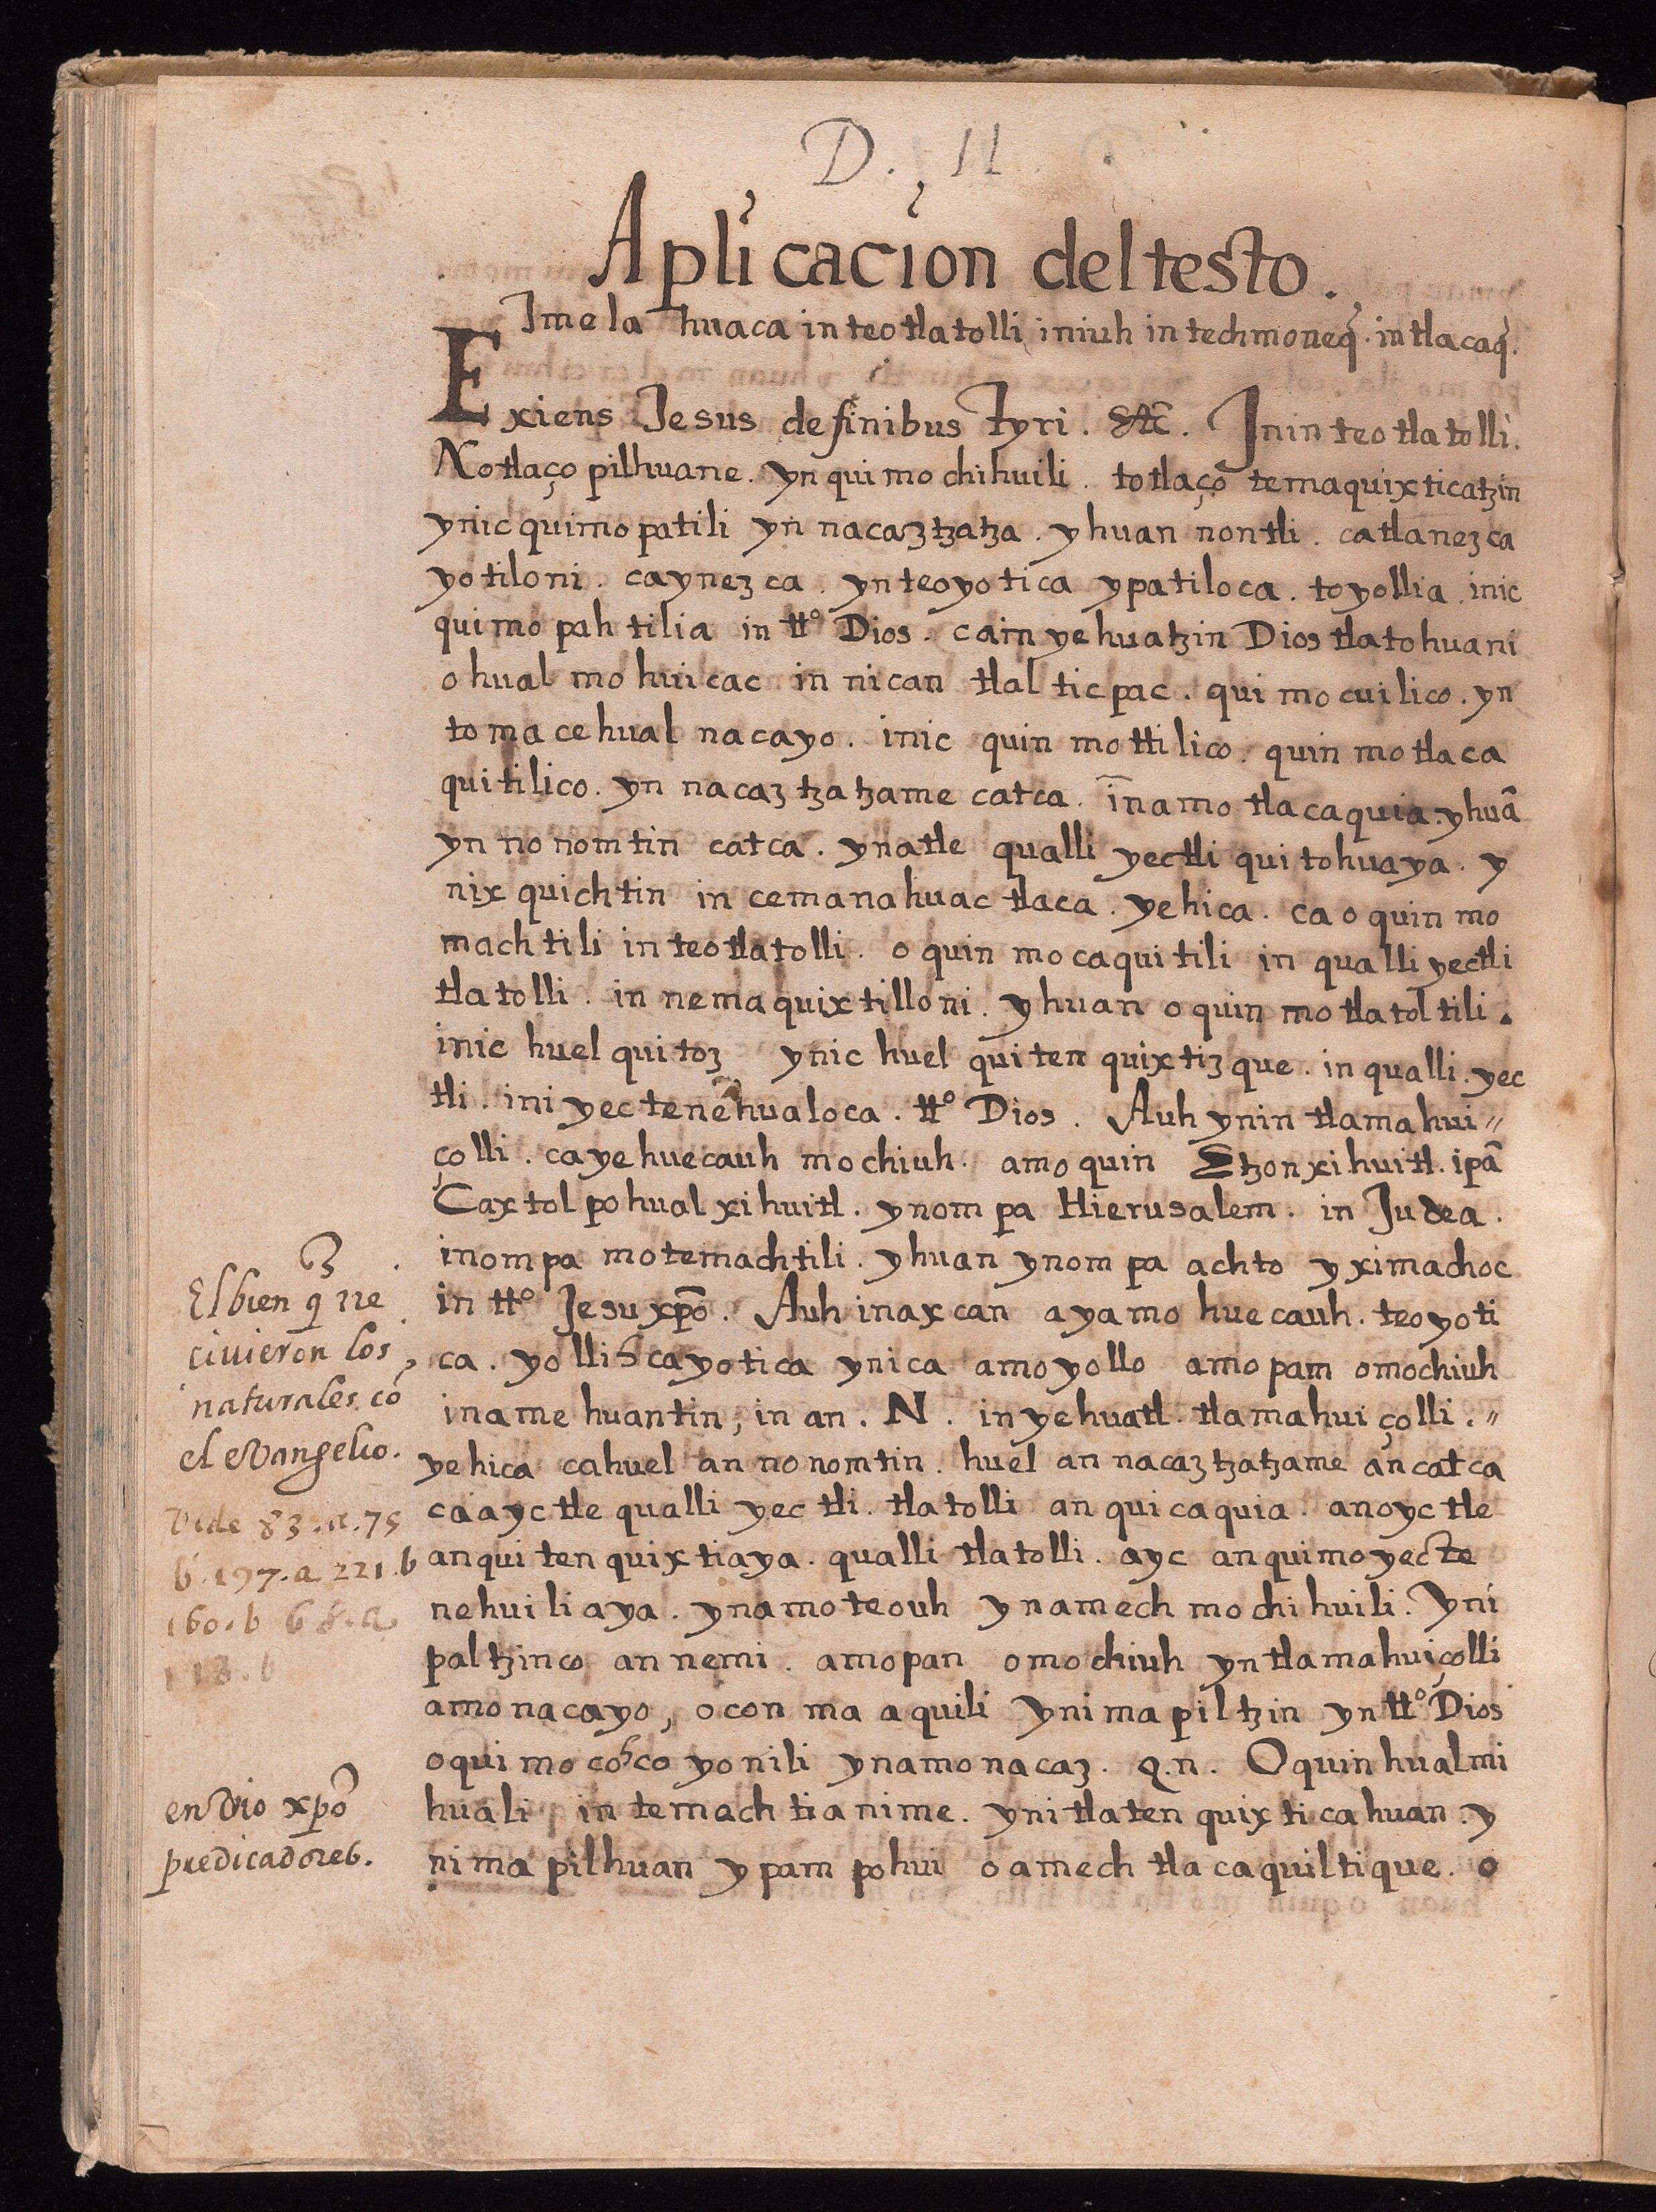 D. 11
Aplicacion del testo.
Imela huaca in teotlatolli iniuh in techmoneq̃. in tlacaq̃.
Exiens Jesus definibus Tyri. &c̃. Inin teotlatolli.
Notlaço pilhuane. yn quimochihuili. totlaço temaquixticatzin
ynic quimopatili yn nacaztzatza. yhuan nontli. catlanezca
yotiloni. caynezca. ynteoyotica ypatiloca. toyollia. inic
quimo pahtilia in ttº Dios. cain yehuatzin Dios tlatohuani
ohualmohuicac in nican tlalticpac. quimocuilico. yn
tomacehual nacayo. inic quin mottilico. quin motlaca
quitilico. yn nacaztzatzame catca. īnamo tlacaquia. yhuā
yn nonomtin catca. ynatle qualli yectli quitohuaya. y
nixquichtin in cemanahuac tlaca. yehica. ca oquin mo
machtili in teotlatolli. oquin mocaquitili in qualli yectli
tlatolli. in nemaquixtilloni. yhuan oquin motlatoltili.
inic huel quitoz ynic huel quitenquixtizque. in qualli. yec
tli. ini yectenehualoca. ttº Dios. Auh ynin tlamahui"
çolli. cayehuecauh mochiuh. amo quin Etzonxihuitl. ipā
Caxtolpohualxihuitl. ynompa Hierusalem. in Judea.
inompa motemachtili. yhuan ynompa achto yximachoc
in ttº Jesu xp̄o. Auh inaxcan ayamo huecauh. teoyoti
ca. yollihcayotica ynica amoyollo amopam omochiuh
inamehuantin, in an. N. inyehuatl. tlamahuiçolli."
yehica cahuel an nonomtin. huel an nacaztzatzame ancatca
caayctle qualli yectli. tlatolli anquicaquia. anoyctle
anquitenquixtiaya. qualli tlatolli. ayc anquimoyecte
nehuiliaya. ynamoteouh ynamechmochihuili. Yni
paltzinco annemi. amopan omochiuh yntlamahuiçolli
amonacayo, oconmaaquili ynimapiltzin yn ttº Dios
oquimocohcoyonili ynamonacaz. q.n. Oquinhualmi
huali in temachtianime. ynitlatenquixticahuan. y
nimapilhuan ypampohui oamechtlacaquiltique. o
El bien q̃ rre
civieron los
naturales cō
el evangelio.
Vide 83.a.75
b.197.a.221.b
160.b 68.a
118.b
endio xp̄o
predicadores.